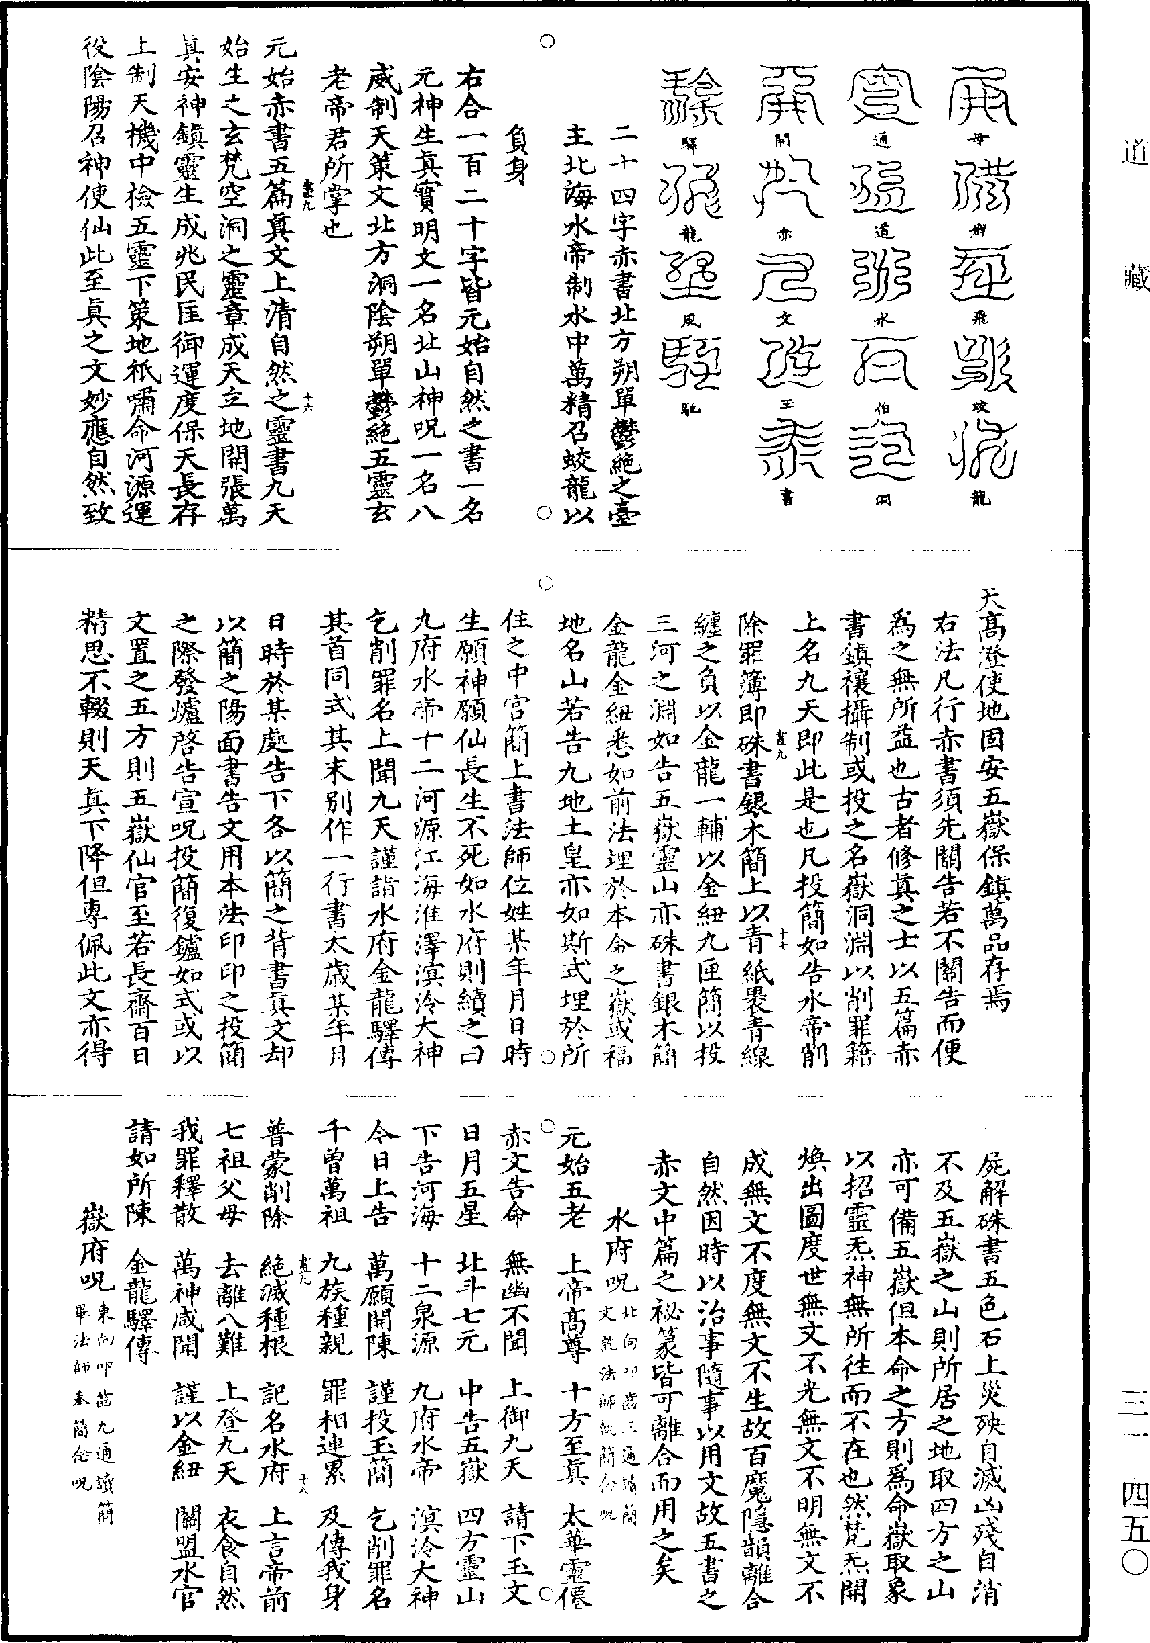 毋躃飛蛟龍
通道水伯洞
開赤文王書
驛龍風馳
二十四字赤書北方朔單鬱絕之臺
主北海水帝制水中萬精召蛟龍以
負身
右合一百二十字皆元始自然之書一名
元神生真寶明文一名北山神呪一名八
威制天策文北方洞陰朔單鬱絕五靈玄
老帝君所掌也
元始赤書五篇真文上清自然之靈書九天
始生之玄梵空洞之靈章成天立地開張萬
真安神鎮靈生成兆民匡御運度保天長存
上制天機中檢五靈下策地祇嘯命河源運
役陰陽召神使仙此至真之文妙應自然致
天高澄使地固安五嶽保鎮萬品存焉
右法凡行赤書須先關告若不關告而便
為之無所益也古者修真之士以五篇赤
書鎮禳攝制或投之名嶽洞淵以削罪籍
上名九天即此是也凡投簡如告水帝削
除罪簿即硃書銀木簡上以青紙褁青線
纏之負以金龍一輔以金紐九匣簡以投
三河之淵如告五嶽靈山亦硃書銀木簡
金龍金紐悉如前法埋於本命之嶽或福
地名山若告九地土皇亦如斯式埋於所
住之中宮簡上書法師位姓某年月日時
生願神願仙長生不死如水府則續之曰
九府水帝十二河源江海淮澤溟泠大神
乞削罪名上聞九天謹詣水府金龍驛傳
其首同式其末別作一行書太歲某年月
日時於某處告下各以簡之背書真文却
以簡之陽面書告文用本法印印之投簡
之際發爐啓告宣呪投簡復鑪如式或以
文置之五方則五嶽仙官至若長齋百日
精思不輟則天真下降但專佩此文亦得
屍解硃書五色石上災殃自滅凶殘自消
不及五嶽之山則所居之地取四方之山
亦可備五嶽但本命之方則為命嶽取象
以招靈炁神無所往而不在也然梵炁開
煥出圖度世無文不光無文不明無文不
成無文不度無文不生故百魔隱韻離合
自然因時以治事隨事以用文故五書之
赤文中篇之祕篆皆可離合而用之矣
水府呪北向叩齒三通讀簡文訖法師執簡念呪
元始五老　上帝高尊　十方至真　太華靈僊
赤文告命　無幽不聞　上御九天　請下玉文
日月五星　北斗七元　中告五嶽　四方靈山
下告河海　十二泉源　九府水帝　溟泠大神
今日上告　萬願開陳　謹投玉簡　乞削罪名
千曾萬祖　九族種親　罪相連累　及傳我身
普蒙削除　絕滅種根　記名水府　上言帝前
七祖父母　去離八難　上登九天　衣食自然
我罪釋散　萬神咸聞　謹以金紐　關盟水官
請如所陳　金龍驛傳
嶽府呪東向叩齒九通讀簡畢法師奉簡念呪
道藏
三一　四五〇